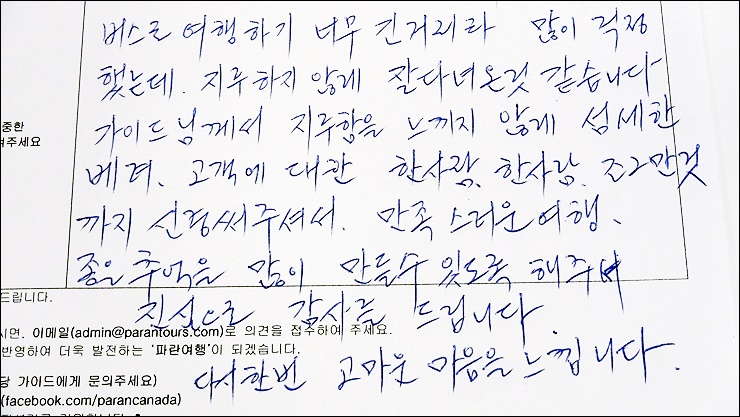 버스로 여행하기 너무 긴거리라 많이 걱정
했는데. 지루하지 않게 잘다녀온것 같습니다
가이드님께서 지루함을 느끼지 않게 섬세한
중한
여주세요
베려. 고객에 대한 한사람. 한사람. 조그만것
까지 신경써주셔서. 만족스러운여행.
좋은추억을 많이 만들수있도록 해주셔
드립니다.
진심으로 감사를 드립니다.
시면. 이메일(admin@parantours.com)로 의견을 접수하여 주세요.
반영하여 더욱 발전하는 '파란여행'이 되겠습니다.
당 가이드에게 문의주세요) 다시한번 고마운 마음을 느낍니다.
(facebook.com/parancanada)